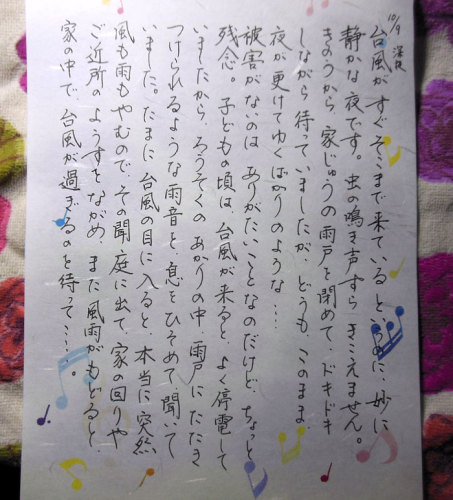 10/9 深夜
台風が すぐそこまで来ている というのに、妙に
静かな夜です。虫の鳴き声すら きこえません。
きのうから、家じゅうの雨戸を閉めて、ドキドキ
しながら待っていましたが、どうも、このまま、
夜が更けてゆくばかりのような…
被害がないのは ありがたいことなのだけど、ちょっと
残念。子どもの頃は、台風が来ると、よく停電して
いましたから、ろうそくの あかりの中、雨戸に たたき
つけられるような雨音を、息をひそめて聞いて
いました。たまに 台風の目に入ると、本当に突然
風も雨もやむので、その間、庭に出て、家の回りや
ご近所の ようすをながめ、また風雨がもどると、
家の中で、台風が過ぎるのを待って…。